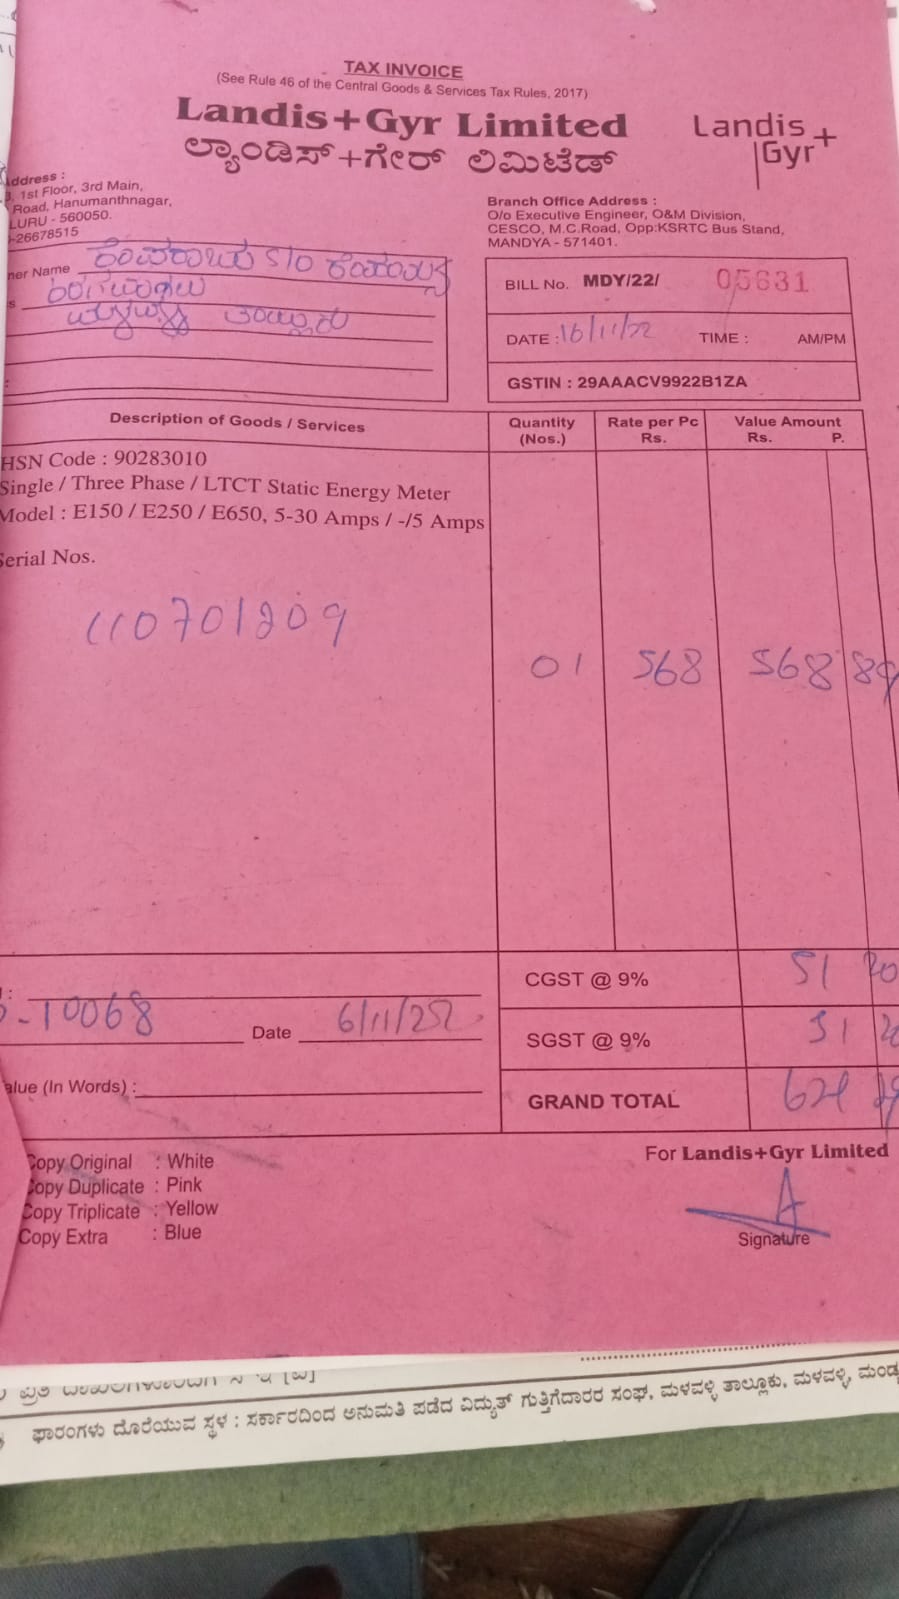 TAX INVOICE
(See Rule 46 of the Central Goods & Services Tax Rules, 2017)
Landis+Gyr Limited
ಲ್ಯಾಂಡಿಸ್+ಗೇರ್ ಲಿಮಿಟೆಡ್
Landis+Gyr+
Address :
1st Floor, 3rd Main,
Road, Hanumanthnagar,
LURU - 560050.
-26678515
Branch Office Address :
O/o Executive Engineer, O&M Division,
CESCO, M.C.Road, Opp:KSRTC Bus Stand,
MANDYA - 571401.
ner Name S/O
BILL No. MDY/22/ 05631
DATE : 16/11/22 TIME : AM/PM
GSTIN : 29AAACV9922B1ZA
Description of Goods / Services Quantity (Nos.) Rate per Pc Rs. Value Amount Rs. P.
HSN Code : 90283010
Single / Three Phase / LTCT Static Energy Meter
Model : E150 / E250 / E650, 5-30 Amps / -/5 Amps
Serial Nos.
110701209
01 568 568 89
CGST @ 9% 51 20
-10068 Date 6/11/22
SGST @ 9% 51 20
alue (In Words) :
GRAND TOTAL
For Landis+Gyr Limited
Copy Original : White
Copy Duplicate : Pink
Copy Triplicate : Yellow
Copy Extra : Blue
Signature
ಫಾರಂಗಳು ದೊರೆಯುವ ಸ್ಥಳ : ಸರ್ಕಾರದಿಂದ ಅನುಮತಿ ಪಡೆದ ವಿದ್ಯುತ್ ಗುತ್ತಿಗೆದಾರರ ಸಂಘ, ಮಳವಳ್ಳಿ ತಾಲ್ಲೂಕು, ಮಳವಳ್ಳಿ, ಮಂಡ್ಯ